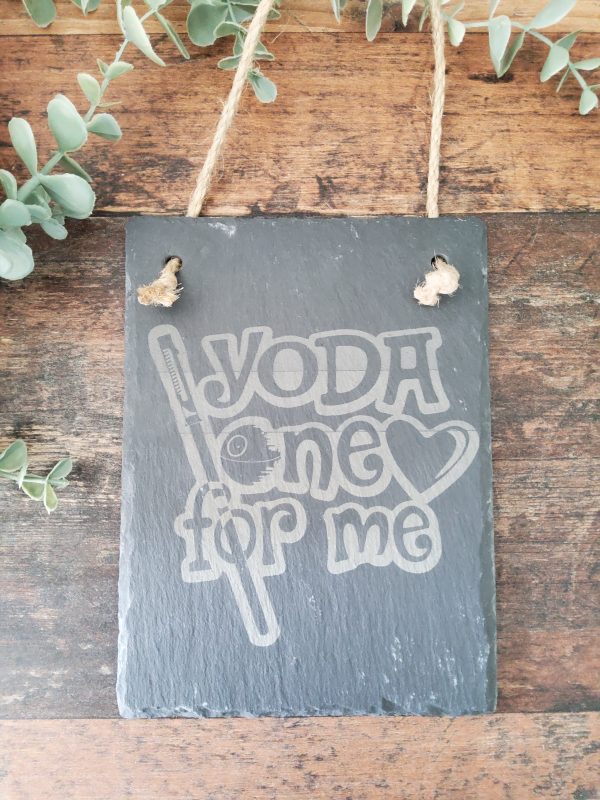 YODA
one
for me